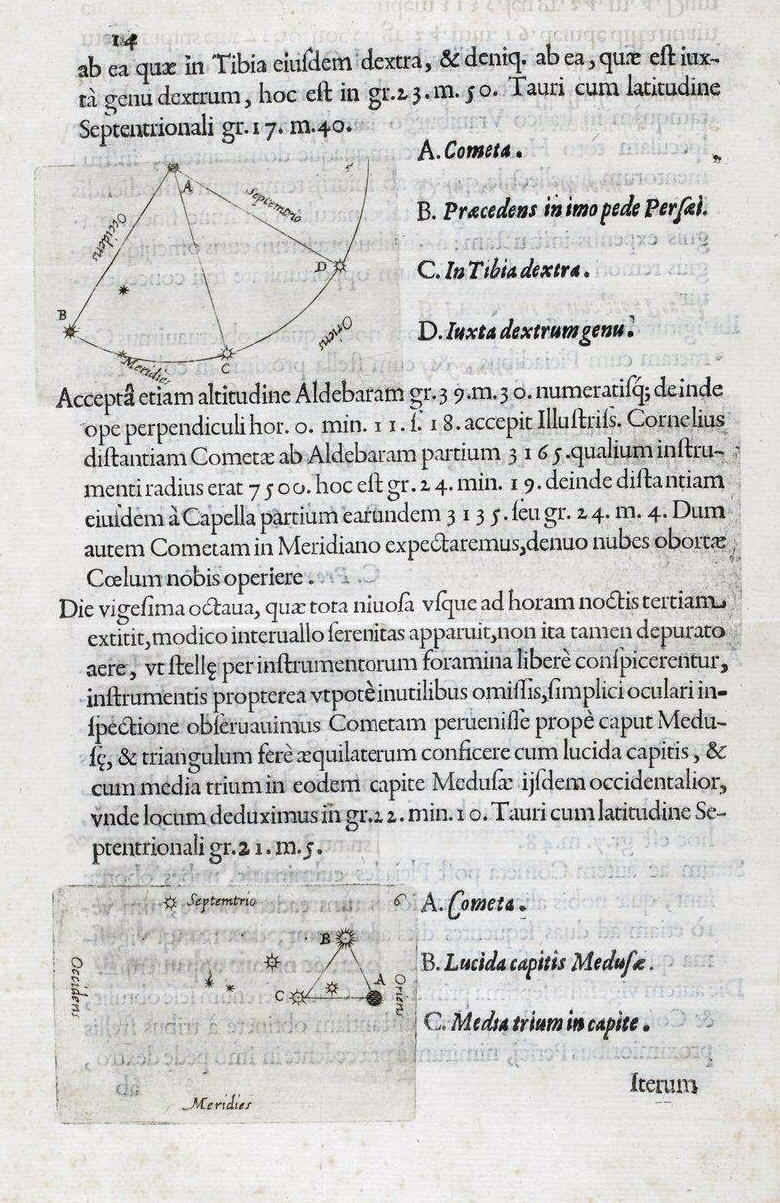 14
ab ea quæ in Tibia eiuſdem dextra, & deniq. ab ea, quæ eſt iux-
tà genu dextrum, hoc eſt in gr.23.m.50. Tauri cum latitudine
Septentrionali gr.17.m.40.
A. Cometa.
B. Præcedens in imo pede Perſæi.
C. In Tibia dextra.
D. Iuxta dextrum genu.
5
A
Septemtrio
Occidens
D
B
Oriens
C
Meridies
Acceptâ etiam altitudine Aldebaram gr.39.m.30. numeratiſq́; deinde
ope perpendiculi hor. 0. min. 11. ſ. 18. accepit Illuſtriſs. Cornelius
diſtantiam Cometæ ab Aldebaram partium 3165.qualium inſtru-
menti radius erat 7500. hoc eſt gr.24.min. 19. deinde diſtantiam
eiuſdem à Capella partium earundem 3135. ſeu gr. 24. m. 4. Dum
autem Cometam in Meridiano expectaremus,denuo nubes obortæ
Cœlum nobis operiere.
Die vigeſima octaua, quæ tota niuoſa vſque ad horam noctis tertiam
extitit,modico interuallo ſerenitas apparuit,non ita tamen depurato
aere, vt ſtellę per inſtrumentorum foramina liberè conſpicerentur,
inſtrumentis propterea vtpotè inutilibus omiſſis,ſimplici oculari in-
ſpectione obſeruauimus Cometam perueniſſe propè caput Medu-
ſę, & triangulum ferè æquilaterum conficere cum lucida capitis, &
cum media trium in eodem capite Meduſæ ijſdem occidentalior,
vnde locum deduximus in gr.22.min.10. Tauri cum latitudine Se-
ptentrionali gr.21.m.5.
Septemtrio
6
A. Cometa.
B
B. Lucida capitis Meduſæ.
Occidens
Oriens
A
C
C. Media trium in capite.
Meridies
Iterum